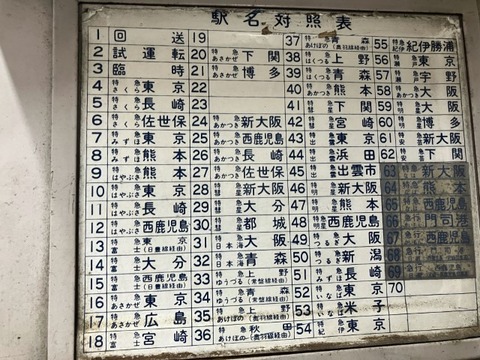 駅名対照表
1 回送
2 試運転
3 臨時
4 特急 さくら 東京
5 特急 さくら 長崎
6 特急 さくら 佐世保
7 特急 みずほ 東京
8 特急 みずほ 熊本
9 特急 はやぶさ 熊本
10 特急 はやぶさ 東京
11 特急 はやぶさ 長崎
12 特急 はやぶさ 西鹿児島
13 特急 富士 東京 (日豊線経由)
14 特急 富士 大分
15 特急 富士 西鹿児島 (日豊線経由)
16 特急 あさかぜ 東京
17 特急 あさかぜ 広島
18 特急 富士 宮崎
19
20 特急 あさかぜ 下関
21 特急 あさかぜ 博多
22
23
24 特急 あかつき 新大阪
25 特急 あかつき 西鹿児島
26 特急 あかつき 長崎
27 特急 あかつき 佐世保
28 特急 彗星 新大阪
29 特急 彗星 大分
30 特急 彗星 都城
31 特急 日本海 大阪
32 特急 日本海 青森
33 特急 ゆうづる 上野 (常盤線経由)
34 特急 ゆうづる 青森 (常盤線経由)
35 特急 あけぼの 上野 (奥羽線経由)
36 特急 あけぼの 秋田 (奥羽線経由)
37 特急 あけぼの 青森 (奥羽線経由)
38 特急 はくつる 上野
39 特急 はくつる 青森
40 特急 あかつき 熊本
41 特急 下関
42 特急 彗星 宮崎
43 特急 出雲 東京
44 特急 出雲 浜田
45 特急 出雲 出雲市
46 特急 明星 新大阪
47 特急 明星 熊本
48 特急 明星 西鹿児島
49 特急 つるぎ 大阪
50 特急 つるぎ 新潟
51 特急 みずほ 長崎
52 特急 いなば 東京
53 特急 いなば 米子
54 特急 紀伊 東京
55 特急 紀伊 紀伊勝浦
56 特急 瀬戸 東京
57 特急 瀬戸 宇野
58 特急 大阪
59 特急 大阪
60 特急 博多
61 特急 安芸 新大阪
62 特急 安芸 下関
63 新大阪
64 熊本
65
66 門司港
67 西鹿児島
68
69
70